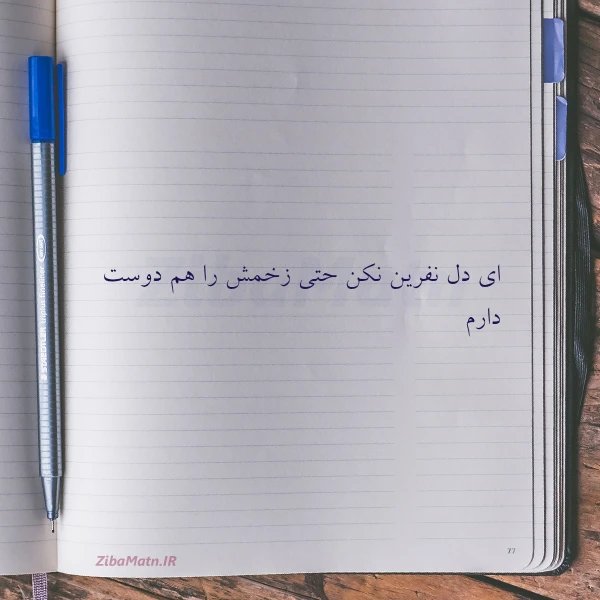 ای دل نفرین نکن حتی زخمش را هم دوست
دارم
ZibaMatn.IR